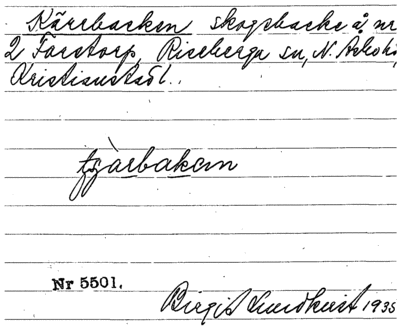 Kärrbacken skogsbacke å nr
2 Färstorp, Riseberga sn, N. Åsbo hd,
Kristianstad l.
tjàrbakan
Nr 5501.
Birgit Lundkvist 1935